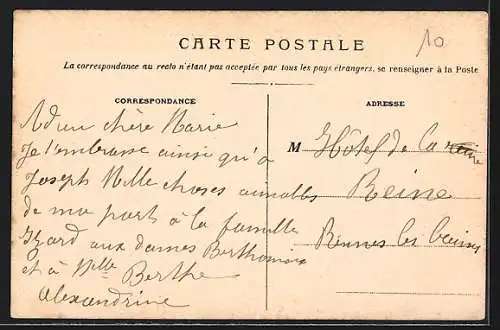 10
CARTE POSTALE
La correspondance au recto n'étant pas acceptée par tous les pays étrangers, se renseigner à la Poste
CORRESPONDANCE
Adieu chère Marie
Je t'embrasse ainsi qu'à
Joseph Mille choses aimables
de ma part à la famille
Izard aux dames
et à Mlle Berthe
Alexandrine
ADRESSE
M Hôtel de la
Reine
Rennes les bains